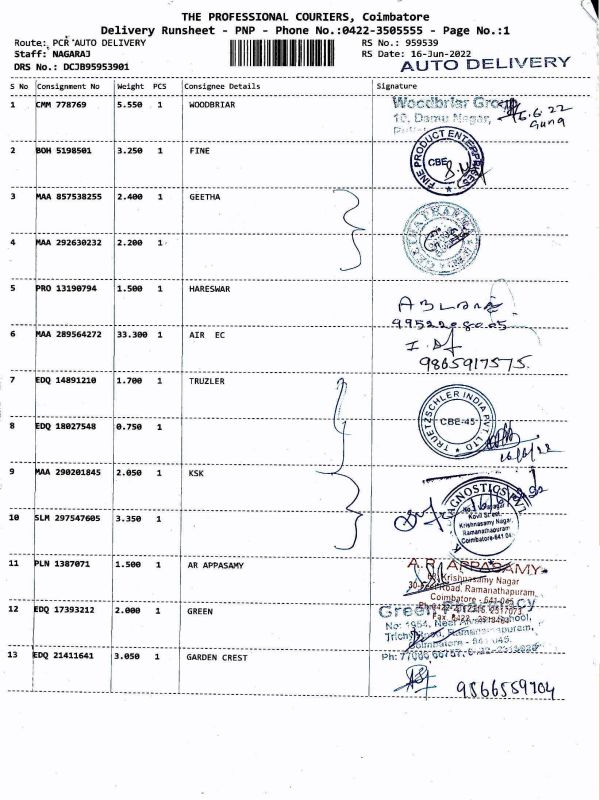 THE PROFESSIONAL COURIERS, Coimbatore
Delivery Runsheet - PNP - Phone No.:0422-3505555 - Page No.:1
Route: PCR AUTO DELIVERY RS No.: 959539
Staff: NAGARAJ RS Date: 16-Jun-2022
DRS No.: DCJB95953901 AUTO DELIVERY
S No Consignment No Weight PCS Consignee Details Signature
1 CMM 778769 5.550 1 WOODBRIAR
Woodbriar Group
10, Damu Nagar,
2 BOH 5198501 3.250 1 FINE
FINE PRODUCT ENTERPRISES
CBE
3 MAA 857538255 2.400 1 GEETHA
4 MAA 292630232 2.200 1
5 PRO 13190794 1.500 1 HARESWAR
6 MAA 289564272 33.300 1 AIR EC
9865917575.
7 EDQ 14891210 1.700 1 TRUZLER
TRUETZSCHLER INDIA PVT. LTD
CBE-45
8 EDQ 18027548 0.750 1
9 MAA 290201845 2.050 1 KSK
Kovil Street,
Krishnasamy Nagar,
Ramanathapuram
Coimbatore-641 04
10 SLM 297547605 3.350 1
11 PLN 1387071 1.500 1 AR APPASAMY
A.R. APPASAMY
Krishnasamy Nagar
Road, Ramanathapuram,
Coimbatore - 641 045
12 EDQ 17393212 2.000 1 GREEN
Green
No: 1954, Near School,
Trichy Road, Ramanathapuram,
Coimbatore - 641 045.
13 EDQ 21411641 3.050 1 GARDEN CREST
9866559704